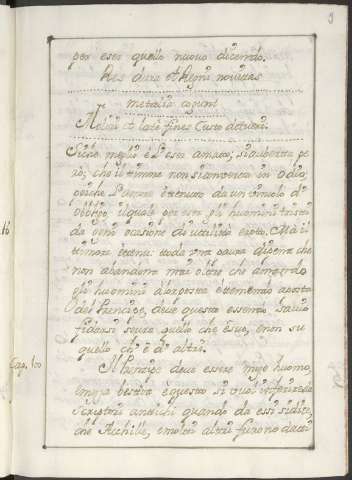 9
per esser quello nuovo dicendo.
Res dura et Regni novitas
me talia cogunt
Moliri et late fines Custode tueri.
Siche meglio è l'esser amato; si avverta pe
rò, che il timore non si converta in odio
perche l'amore è tenuto da un vincolo di
obligo, il quale per esser gli huomini tristi
da ogni ocasione di utilità è rotto. Mà il
timore è tenuto da una paura di pena che
non abandona mai oltre che amando
gli huomini à lor posta e temendo a posta
del Prencipe, deve questo essendo savio
fidarsi sopra quello che è suo, e non su
quello ch' è d'altri.
Cap. 10
Il Prencipe deve essere mezo huomo,
e mezo bestia e questo si vuol inferire da
scrittori antichi quando da essi si dice,
che Acchille, e molti altri furono dati